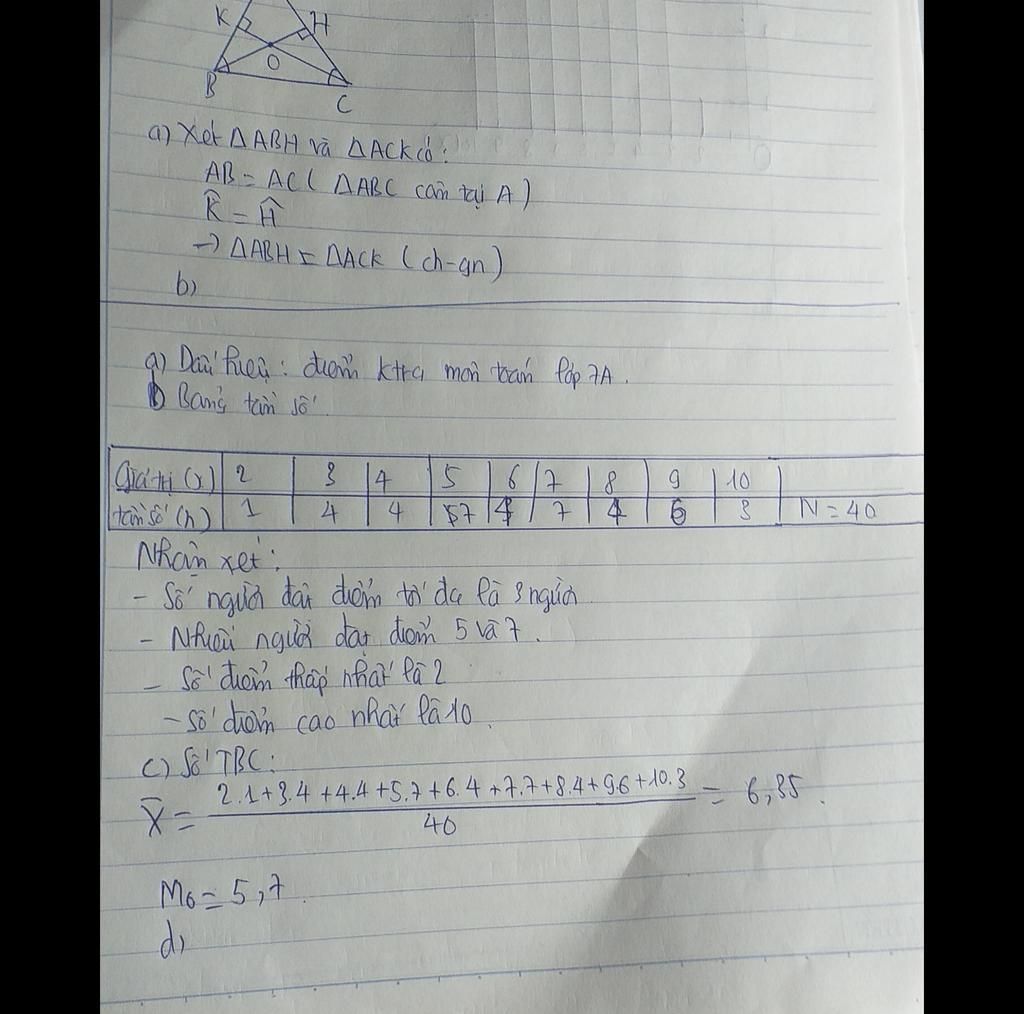 K H
O
B
C
a) Xét ΔABH và ΔACK có:
AB = AC ( ΔABC cân tại A )
K̂ = Ĥ
→ ΔABH = ΔACK (ch-gn)
b)
a) Dấu hiệu : điểm ktra môn toán lớp 7A.
b) Bảng tần số
Giá trị (x) 2 3 4 5 6 7 8 9 10
tần số (n) 1 4 4 7 4 7 4 6 3 N = 40
Nhận xét :
- Số người đạt điểm tối đa là 3 người
- Nhiều người đạt điểm 5 và 7.
- Số điểm thấp nhất là 2
- Số điểm cao nhất là 10.
c) Số TBC:
X̄ = 2.1+3.4+4.4+5.7+6.4+7.7+8.4+9.6+10.3 / 40 = 6,35.
M₀ = 5,7.
d)